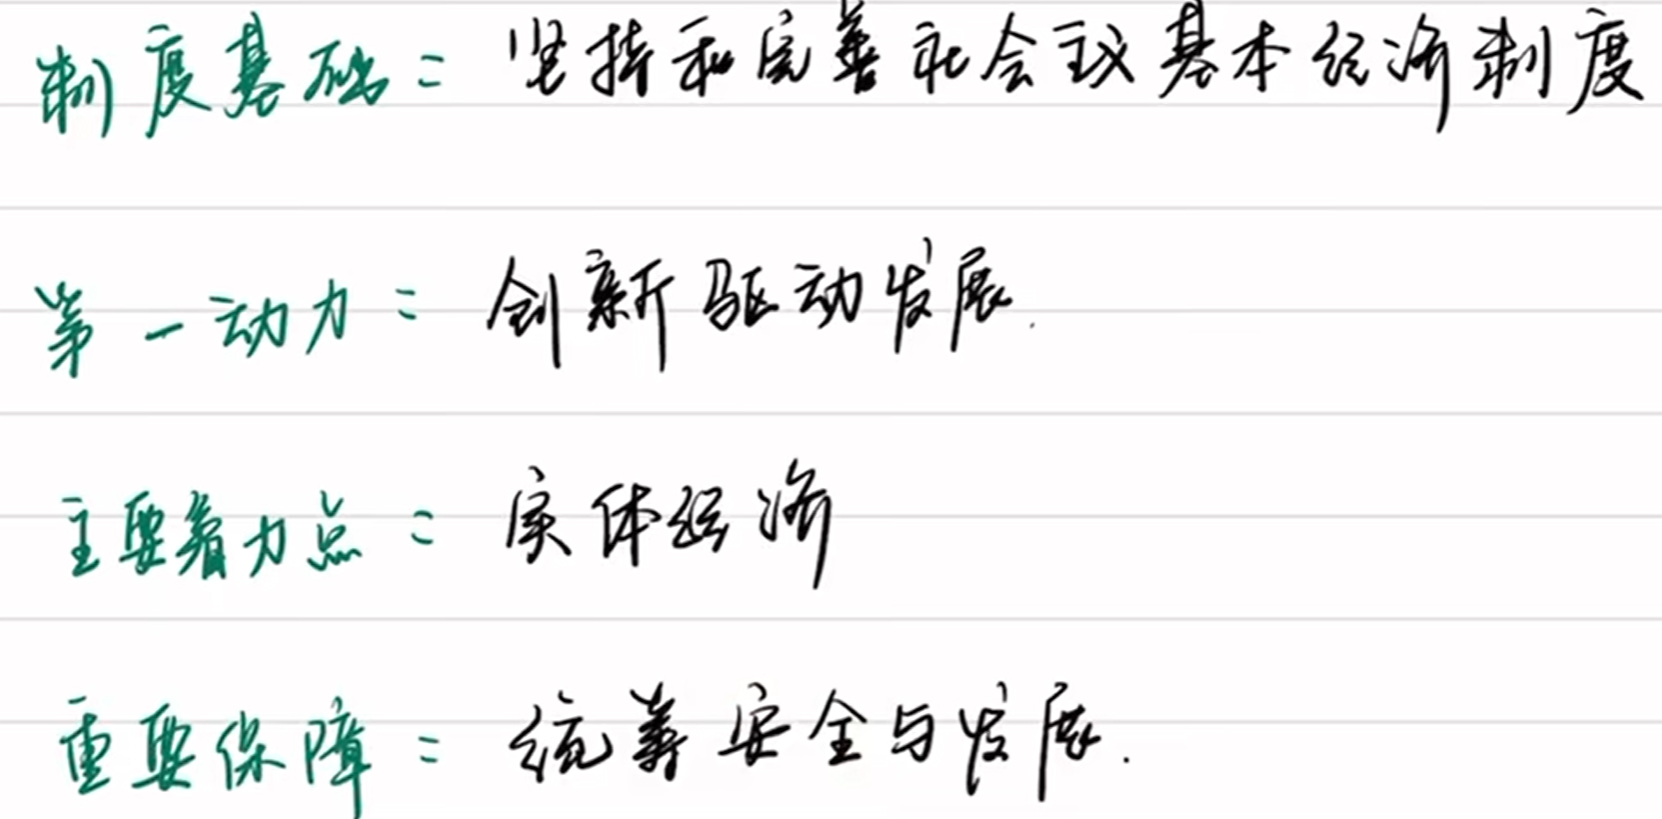 制度基础：坚持和完善社会主义基本经济制度
第一动力：创新驱动发展.
主要着力点：实体经济
重要保障：统筹安全与发展.